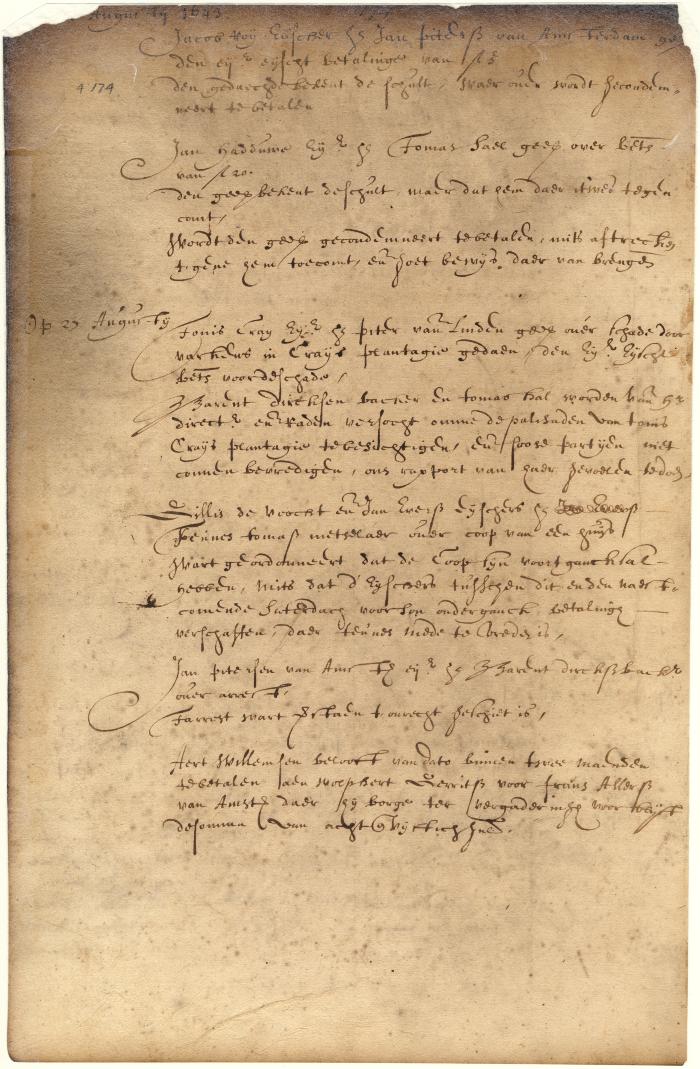 Augusty 1643
Jacob Roy Eyscher Jan Piterß van Amsterdam
den eyr eyscht betalinge van
4 174
den gedaechde bekent de schult, waer over wordt gecondem-
neert te betalen
Jan Hadduwe Eyr Tomas Hael geeȝ over beth
van fl 20.
den geeȝ bekent deschult, maer dat hem daer itwes tegen
comt,
Wordt den geeȝ gecondemneert tebetalen, mits aftrecken
tgene hem toecomt, en moet bewys daer van brengen
Op 27 Augusty
Tonis Cray Eyr piter van Linden geeȝ over schade door
varkens in Crays plantagie gedaen, den Eyr Eyscht
beth voordeschade,
Barent dircksen backer en tomas hal worden van
directr en Raden versocht omme de palisaden van tonis
Crays plantagie tebesichtigen, en soose partyen niet
connen bevredigen, ons rapport van haer gevoelen tedoen
Gillis de voocht en Jan Everß eyschers
teunes tomaß metselaer over coop van een huys
Wart geordonneert dat de Coop syn voortganck sal
hebben, mits dat d'Eyschers tusschen dit en den naest-
comende Saterdach voor son onderganck betalinge
verschaffen, daer teunes mede te vreden is,
Jan pitersen van Amst eyr Barent dirckß backr
over arrest
T'arrest wart verstaen t'onrecht geschiet is,
Aert Willemsen belooft van dato binnen twee maenden
tebetalen aen wolphert Gerritß voor frans Allerß
van Amst daer hy borge ter voor
desomma van acht en vyftich